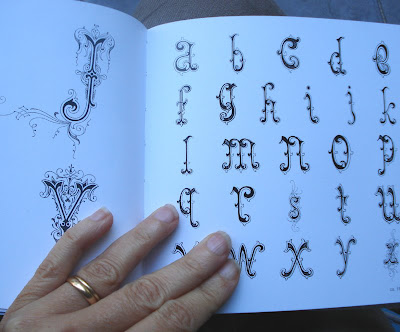 J
V
a b c d e
f g h i j k
l m n o p
q r s t u
v w x y z